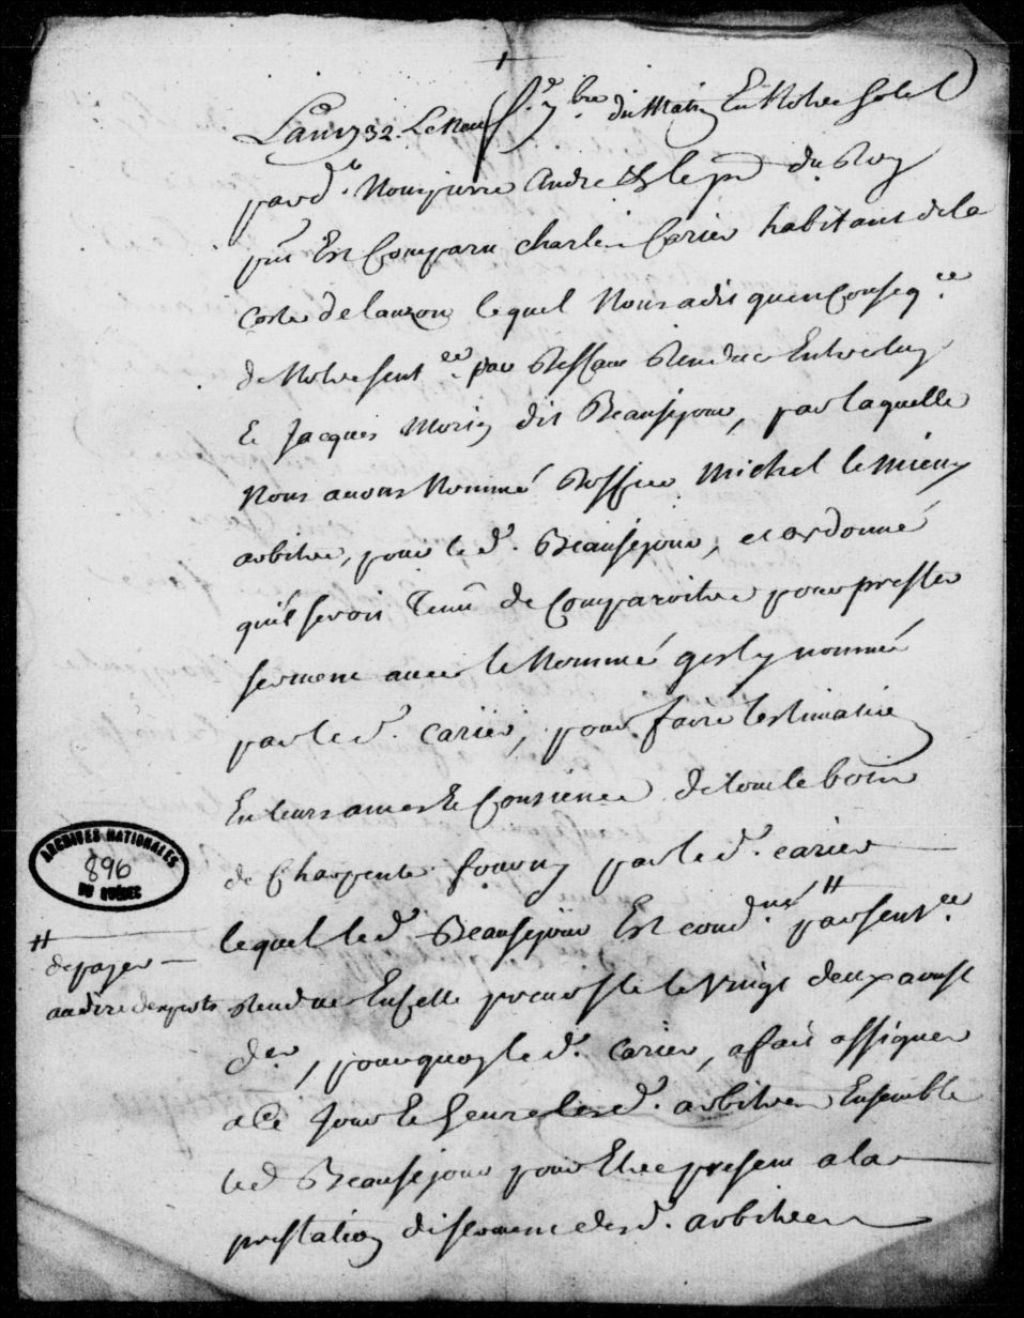 Lan 1732. Le neuf 7bre du Matin En Notre hotel
pard. Nous pierre André &
Est Comparu charles Carier habitant de la
Coste de lauzon lequel Nous a dit quen Conseq.ce
de Notre sent.ce par Nous Rendue Entre luy
Et Jacques Morin dit Beausejour, par laquelle
Nous avons Nommé d'office Michel le Mieux
arbitre, pour le d. Beausejour, et ordonné
quil seroit Tenu de Comparoitre pour prester
serment avec le Nommé gesly nommé
par le d. carier, pour faire lestimation
En leurs ames Et Consience de tout le bois
de Charpente fourny par le d. carier
lequel le d. Beausejour Est cond.né # par sent.ce
# de payer
au dire dexperts
Rendue En le vingt deux aoust
d.er, pourquoy le d. Carier, a fait assigner
a Ce Jour Et heure lesd. arbitres Ensemble
led Beausejour pour Etre present a la
prestation de serment desd. arbitres
ARCHIVES NATIONALES
896
DU QUÉBEC